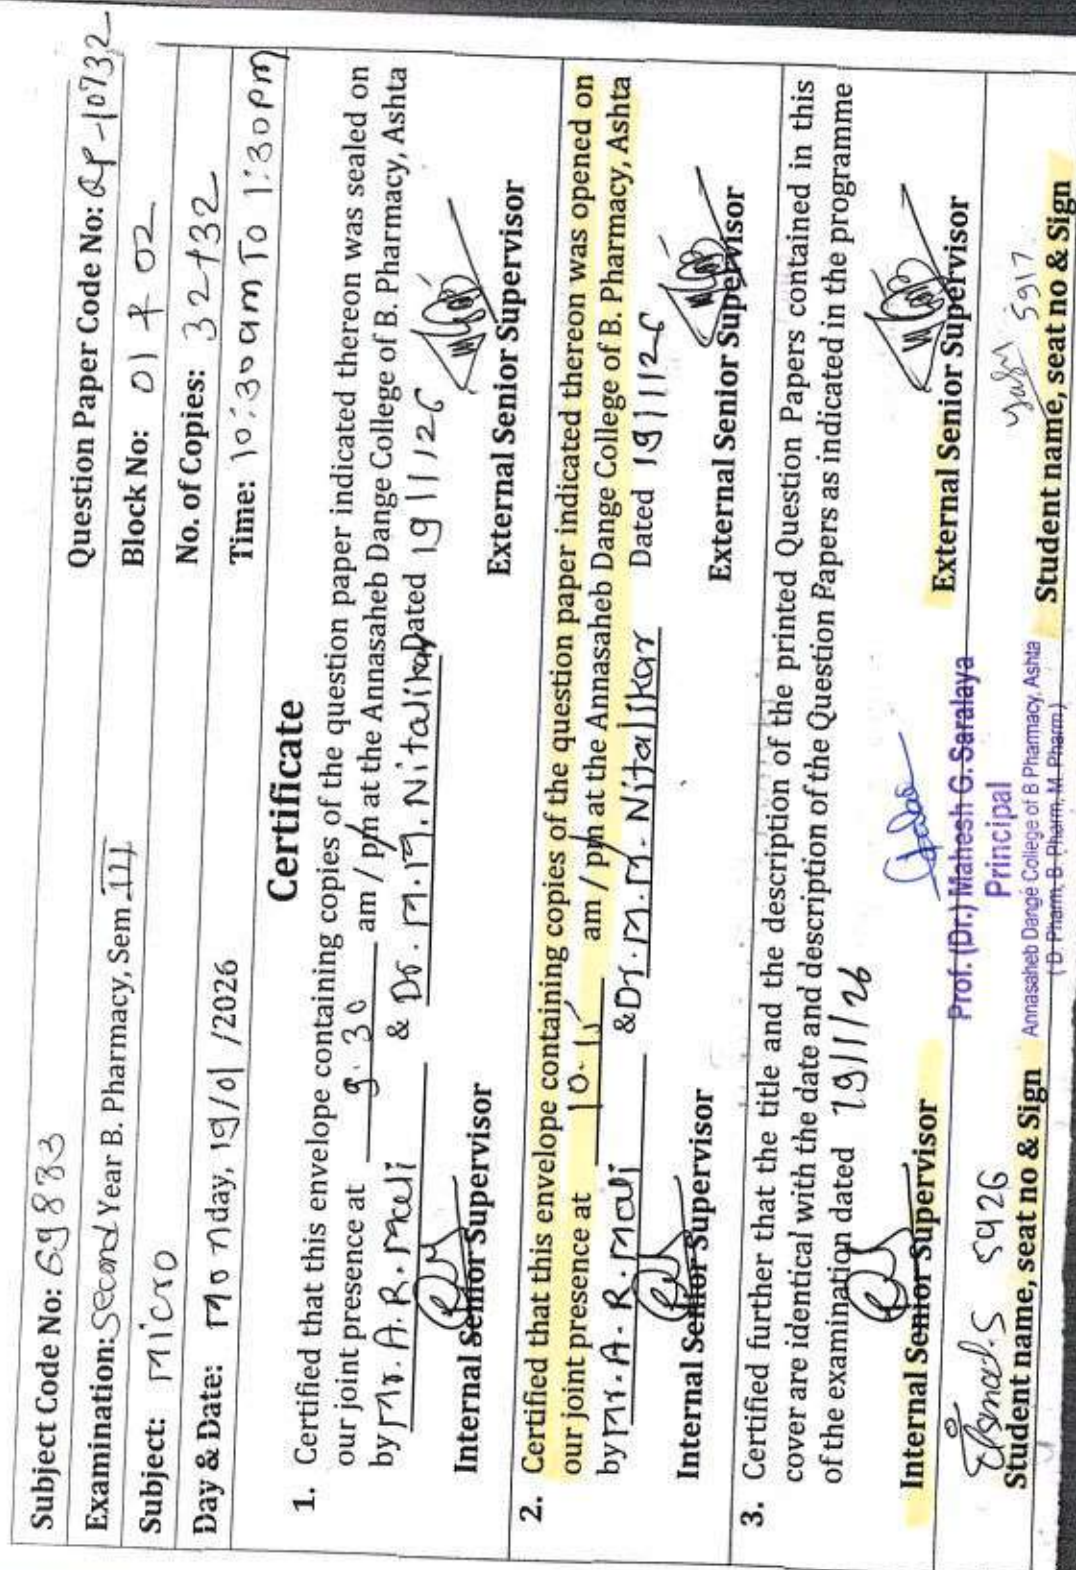 Subject Code No: 69883 Question Paper Code No: QP-10732
Examination: Second Year B. Pharmacy, Sem III Block No: 01 & 02
Subject: Micro No. of Copies: 32+32
Day & Date: Monday, 19/01/2026 Time: 10:30am To 1:30pm
Certificate
1. Certified that this envelope containing copies of the question paper indicated thereon was sealed on
our joint presence at 9.30 am / pm at the Annasaheb Dange College of B. Pharmacy, Ashta
by Mr. A.R. Mali & Dr. M.M. Nitalikar Dated 19/1/26
Internal Senior Supervisor External Senior Supervisor
2. Certified that this envelope containing copies of the question paper indicated thereon was opened on
our joint presence at 10.15 am / pm at the Annasaheb Dange College of B. Pharmacy, Ashta
by Mr. A. R. Mali & Dr. M.M. Nitalikar Dated 19/1/26
Internal Senior Supervisor External Senior Supervisor
3. Certified further that the title and the description of the printed Question Papers contained in this
cover are identical with the date and description of the Question Papers as indicated in the programme
of the examination dated 19/1/26
Internal Senior Supervisor External Senior Supervisor
Prof. (Dr.) Mahesh G. Saralaya
Principal
Annasaheb Dange College of B Pharmacy, Ashta
( D. Pharm, B. Pharm, M. Pharm.)
5426 5917
Student name, seat no & Sign Student name, seat no & Sign